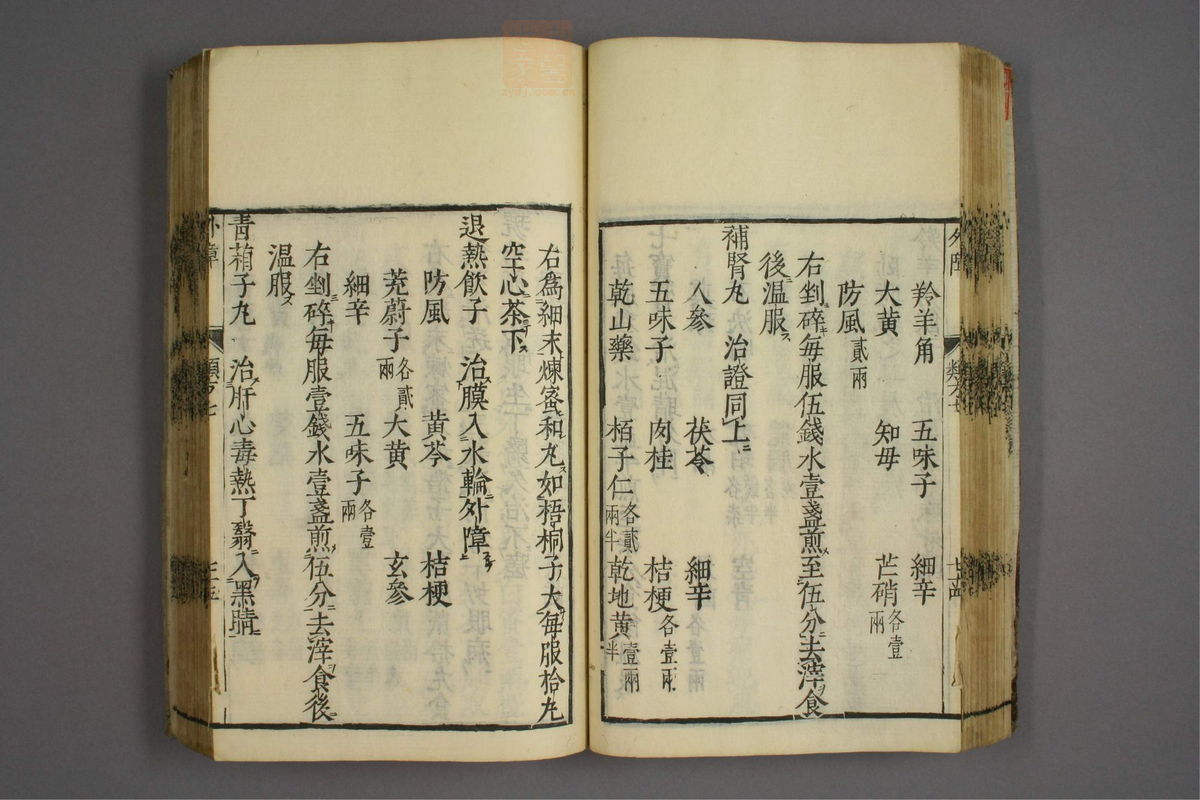 羚羊角 五味子 細辛
大黄 知母 芒硝各壹兩
防風貳兩
右剉碎每服伍錢水壹盞煎至伍分去滓食
後溫服
補腎丸 治證同上
人參 茯苓 細辛
五味子 肉桂 桔梗各壹兩
乾山藥 栢子仁各貳兩半 乾地黄壹兩半
右爲細末煉蜜和丸如梧桐子大每服拾丸
空心茶下
退熱飲子 治膜入水輪外障
防風 黄芩 桔梗
茺蔚子各貳兩 大黄 玄參
細辛 五味子各壹兩
右剉碎每服壹錢水壹盞煎伍分去滓食後
溫服
青葙子丸 治肝心毒熱丁翳入黑睛
外障